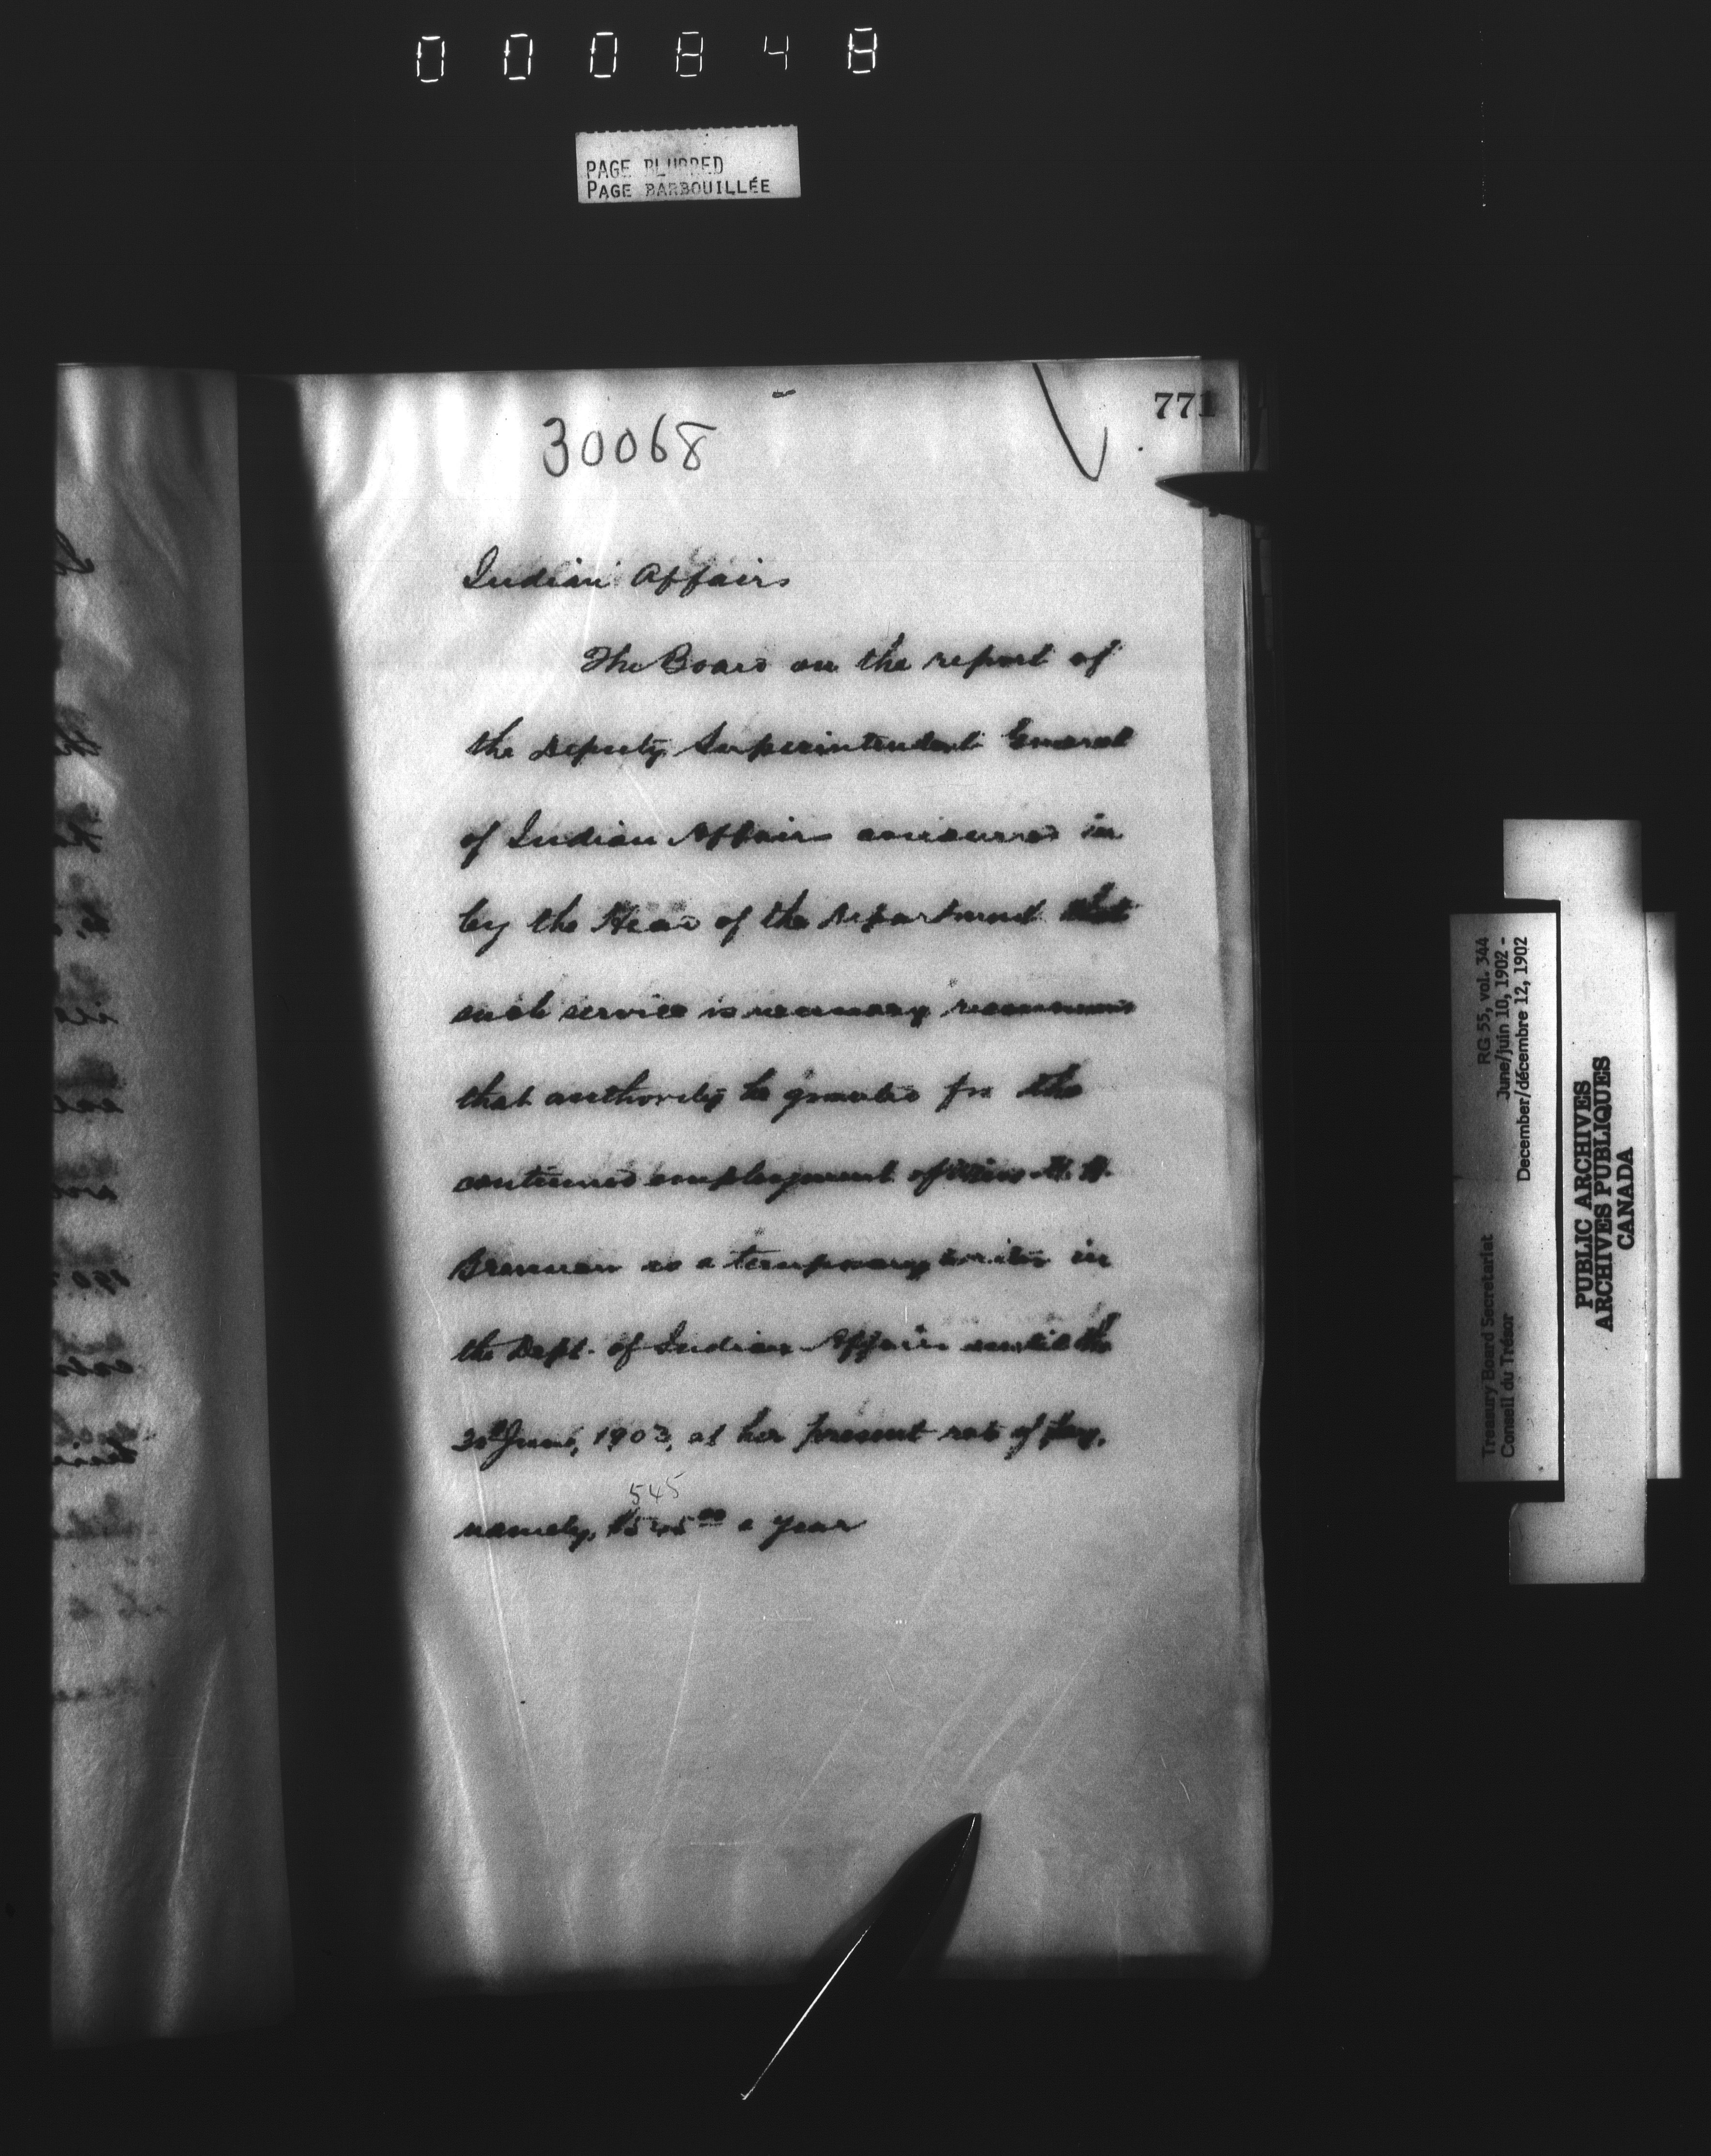 000848
PAGE BLURRED
PAGE BARBOUILLÉE
771
30068
Indian Affairs
The Board on the report of
the Deputy Superintendent General
of Indian Affairs concurred in
by the Head of the Department that
such service is necessary recommend
that authority be granted for the
continued employment of Miss
Brennan as a temporary writer in
the Dept. of Indian Affairs until the
30th June, 1903, at her present rate of pay,
545
namely, $545 00 a year
Treasury Board Secretariat
Conseil du Trésor
RG 55, vol. 344
June/juin 10, 1902 -
December/décembre 12, 1902
PUBLIC ARCHIVES
ARCHIVES PUBLIQUES
CANADA